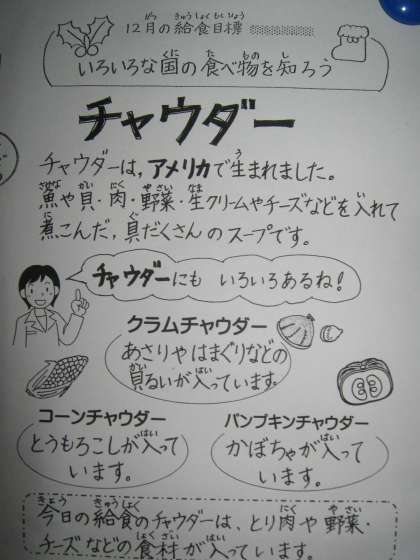 12月の給食目標
いろいろな国の食べ物を知ろう
チャウダー
チャウダーは,アメリカで生まれました。
魚や貝・肉・野菜・生クリームやチーズなどを入れて
煮こんだ,具だくさんのスープです。
チャウダーにも いろいろあるね!
クラムチャウダー
あさりやはまぐりなどの
貝るいが入っています。
コーンチャウダー
とうもろこしが入って
います。
パンプキンチャウダー
かぼちゃが入って
います。
今日の給食のチャウダーは、とり肉や野菜・
チーズなどの食材が入っています。